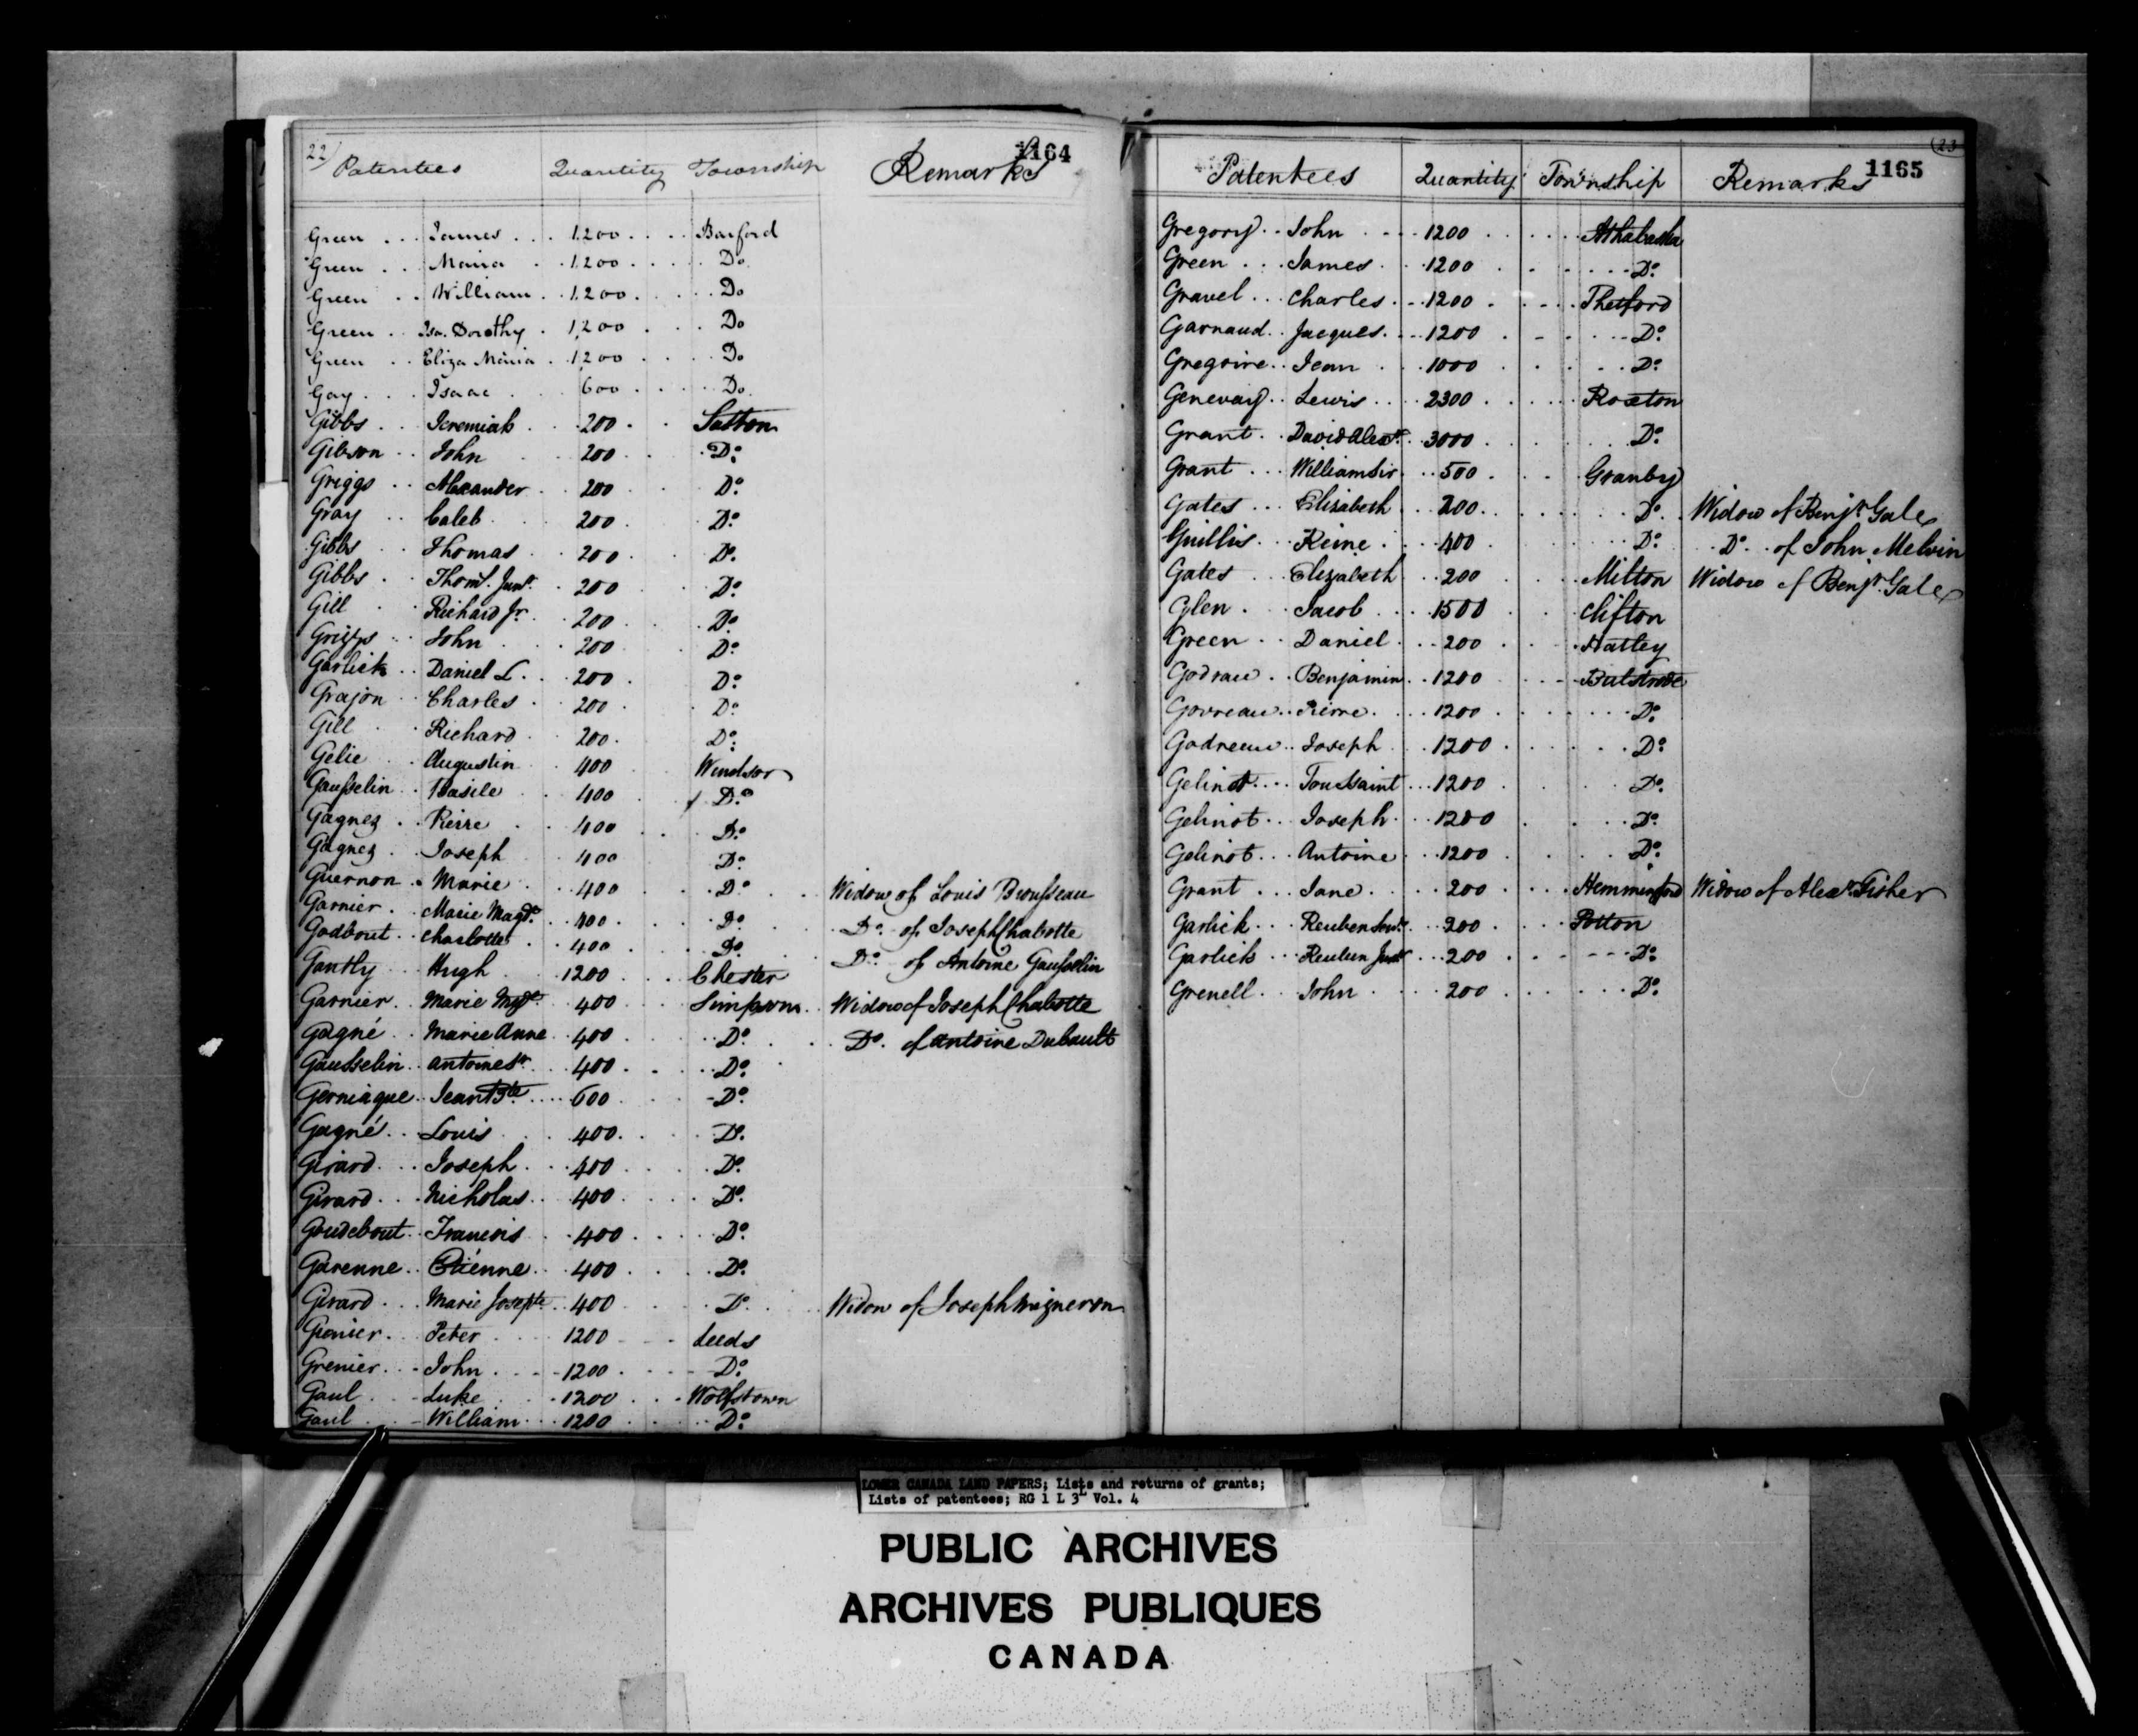 22/ 1164
Patentees Quantity Township Remarks
Green James 1,200 Barford
Green Maria 1,200 Do
Green William 1,200 Do
Green Isa. Dorothy 1,200 Do
Green Eliza Maria 1,200 Do
Gay Isaac 600 Do
Gibbs Jeremiah 200 Sutton
Gibson John 200 Do.
Griggs Alexander 200 Do.
Gray Caleb 200 Do.
Gibbs Thomas 200 Do.
Gibbs Thoms. Junr. 200 Do.
Gill Richard Jr. 200 Do.
Griggs John 200 Do.
Garlick Daniel L. 200 Do.
Grajon Charles 200 Do.
Gill Richard 200 Do.
Gelie Augustin 400 Windsor
Gausselin Basile 400 Do.
Gagnez Pierre 400 Do.
Gagnez Joseph 400 Do.
Guernon Marie 400 Do. Widow of Louis Brousseau
Garnier Marie Magde. 400 Do. Do. of Joseph Chabotte
Godbout Charlotte 400 Do. Do. of Antoine Gausselin
Gantly Hugh 1200 Chester
Garnier Marie Mgde. 400 Simpson Widow of Joseph Chabotte
Gagné Marie Anne 400 Do. Do. of Antoine Dubault
Gausselin Antoine Sr. 400 Do.
Gerniaque Jean Bte. 600 Do.
Gagné Louis 400 Do.
Girard Joseph 400 Do.
Girard Nicholas 400 Do.
Goudebout Francois 400 Do.
Garenne Etienne 400 Do.
Girard Marie Josepte 400 Do. Widow of Joseph Migneron
Grenier Peter 1200 Leeds
Grenier John 1200 Do.
Gaul Luke 1200 Wolfstown
Gaul William 1200 Do.
(23 1165
Patentees Quantity Township Remarks
Gregory John 1200 Athabaska
Green James 1200 Do.
Gravel Charles 1200 Thetford
Garnaud Jacques 1200 Do.
Gregoire Jean 1000 Do.
Genevay Lewis 2300 Roxton
Grant David Alexr. 3000 Do.
Grant William Sir 500 Granby
Gates Elizabeth 200 Do. Widow of Benjn. Gale
Guillis Reine 400 Do. Do. of John Melvin
Gates Elizabeth 200 Milton Widow of Benjn. Gale
Glen Jacob 1500 Clifton
Green Daniel 200 Hatley
Godrau Benjamin 1200 Bulstrode
Govreau Pierre 1200 Do.
Godreau Joseph 1200 Do.
Gelinot Toussaint 1200 Do.
Gelinot Joseph 1200 Do.
Gelinot Antoine 1200 Do.
Grant Jane 200 Hemmingford Widow of Alexr. Fisher
Garlick Reuben Senr. 200 Potton
Garlick Reuben Junr. 200 Do.
Grenell John 200 Do.
LOWER CANADA LAND PAPERS; Lists and returns of grants;
Lists of patentees; RG 1 L 3L Vol. 4
PUBLIC ARCHIVES
ARCHIVES PUBLIQUES
CANADA